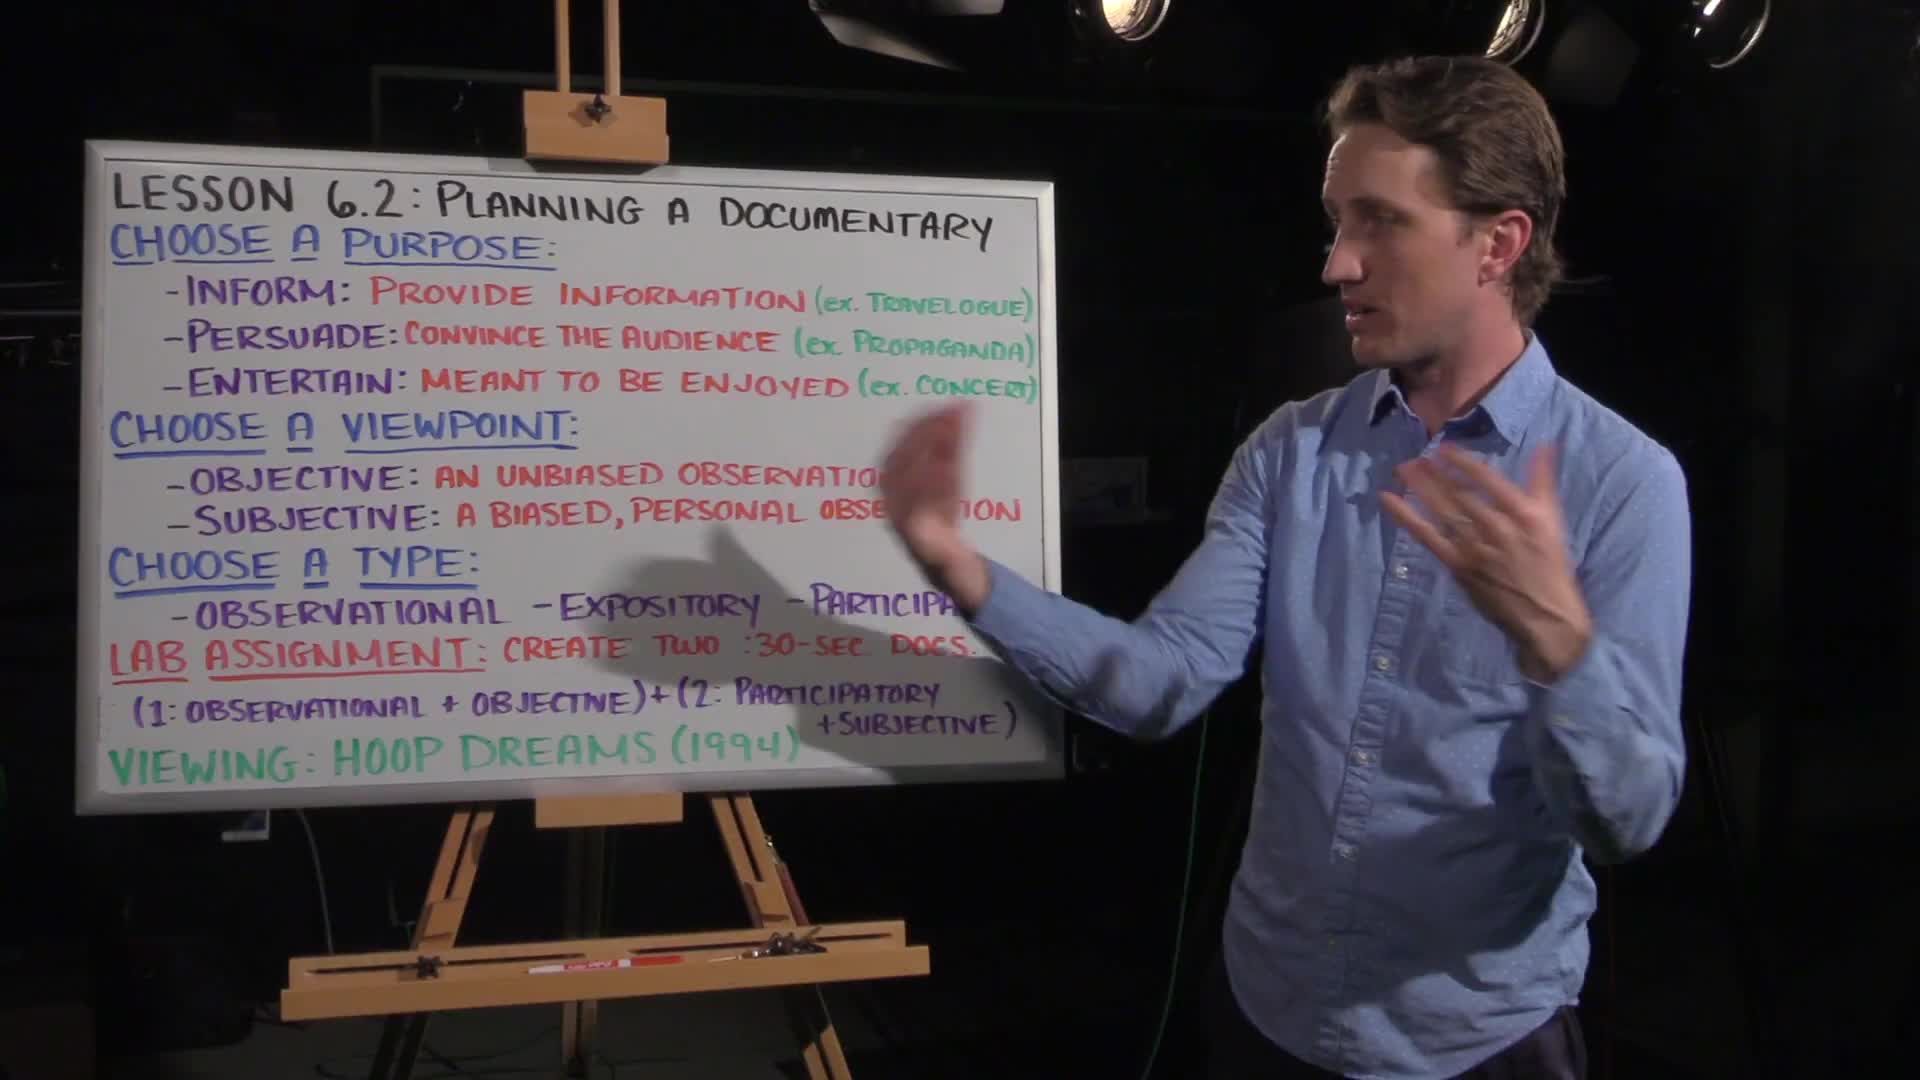 LESSON 6.2: PLANNING A DOCUMENTARY
CHOOSE A PURPOSE:
-INFORM: PROVIDE INFORMATION (ex. TRAVELOGUE)
-PERSUADE: CONVINCE THE AUDIENCE (ex. PROPAGANDA)
-ENTERTAIN: MEANT TO BE ENJOYED (ex. CONCERT)
CHOOSE A VIEWPOINT:
-OBJECTIVE: AN UNBIASED
-SUBJECTIVE: A BIASED, PERSONAL
CHOOSE A TYPE:
-OBSERVATIONAL -EXPOSITORY
LAB ASSIGNMENT: CREATE TWO :30-SEC DOCS.
(1: OBSERVATIONAL + OBJECTIVE)+(2: PARTICIPATORY
+SUBJECTIVE)
VIEWING: HOOP DREAMS (1994)